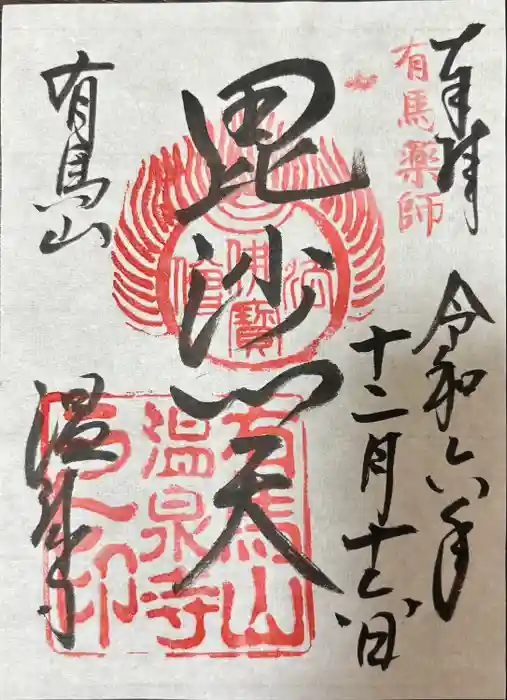 奉拝
有馬薬師
令和六年
十二月十七日
毘沙門天
佛法僧寳
有馬山
温泉寺
之印
有馬山
温泉寺